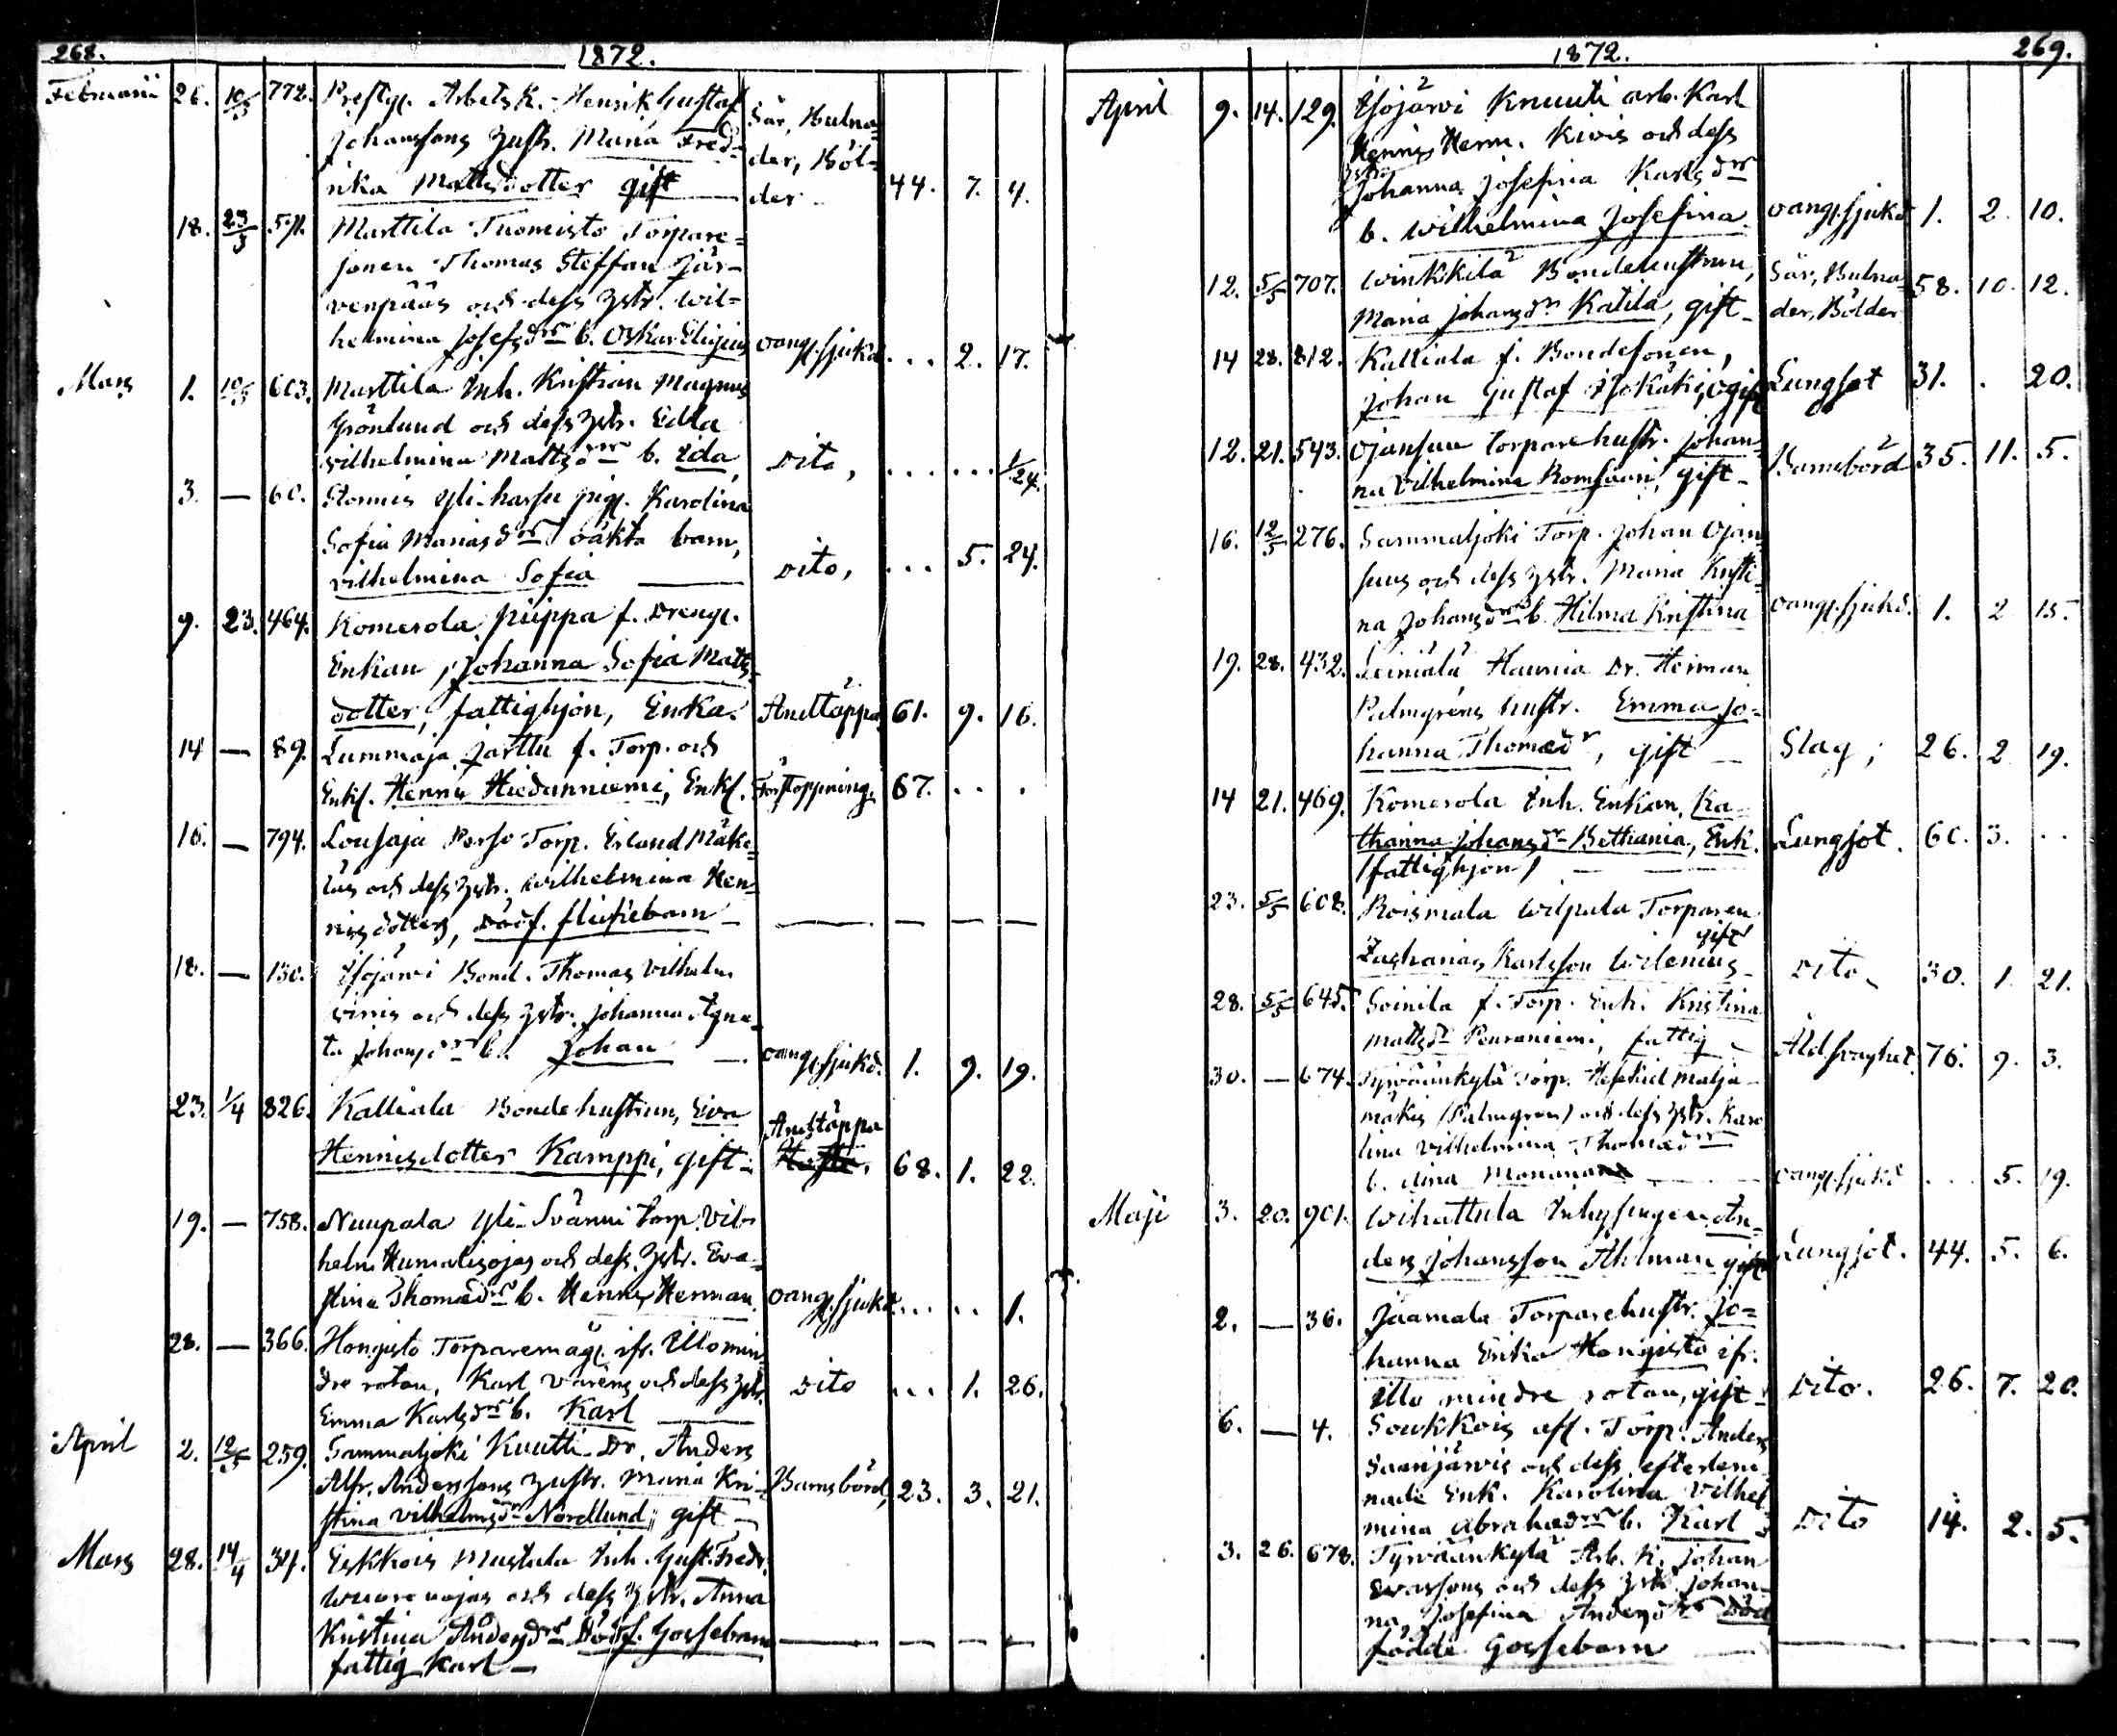 268.
1872.
Februarii 26. 10/3 772. Prestg. Arbets K. Henrik Gustaf
Johanssons hustr. Maria Fred-
rika Mattsdotter gift
Sår, Bulna-
der, Böl-
der 44. 7. 4.
18. 23/3 591. Marttila Tuomisto Torpare-
sonen Thomas Steffan Jär-
venpääs och dess hstr. Wil-
helmina Josefsdrs b. Oskar Eligius oang. sjukd. . . . 2. 17.
Mars 1. 10/3 603. Marttila Inh. Kristian Magnus
Grönlund och dess hstr. Edla
Vilhelmina Mattsdrs b. Ida Dito, . . . . . . 1/24.
3. — 60. Yli-harju pig. Karolina
Sofia Mariasdrs oäkta barn,
Vilhelmina Sofia Dito, . . . 5. 24.
9. 23. 464. Komerola Piippa f. Dreng.
Enkan, Johanna Sofia Matts-
dotter, fattighjon, Enka. Andtäppa 61. 9. 16.
14 — 89. Lummaja Jarttu f. Torp. och
Enkl. Henrik Hiedanniemi, Enkl. Förstoppning, 67. . . .
16. — 794. Lousaja Perho Torp. Erland Mäke-
läs och dess hstr. Wilhelmina Hen-
riksdotters, Dödf. flickebarn — — — —
18. — 130. Isojärvi Bond. Thomas Vilhelm
och dess hstr. Johanna Agna-
ta Johansdrs b. Johan oang. sjukd. 1. 9. 19.
23. 1/4 826. Kalliala Bondehustrun, Eva
Henriksdotter Kamppi, gift Andtäppa 68. 1. 22.
19. — 758. Nuupala Yli-Svänni Torp. Vil-
helm Humalisojas och dess hstr. Eva
Stina Thomasdrs b. Henrik Herman oang. sjukd. . . . . . 1.
28. — 366. Hongisto Torparemåg. ifr. Illo min-
dre rotan, Karl Varéns och dess hstr.
Emma Karlsdrs b. Karl Dito . . . 1. 26.
April 2. 12/5 259. Sammaljoki Knuuti Dr. Anders
Alfr. Anderssons hustr. Maria Kri-
stina Vilhelmsdr Nordlund, gift Barnsbörd, 23. 3. 21.
Mars 28. 14/4 34. Eskkois Mustala Inh. Gust. Fredr.
och dess hstr. Anna
Kristina Andersdrs Dödf. Gossebarn — — — —
fattig Karl —
1872.
269.
April 9. 14. 129. Isojärvi Knuuti arb. Karl
Henrik Herm. Kivis och dess
hstr.
Johanna Josefina Karlsdrs
b. Wilhelmina Josefina oang. sjukd 1. 2. 10.
12. 5/5 707. Winkkilä Bondehustrun,
Maria Johansdr Katila, gift Sår, Bulna-
der, Bölder 58. 10. 12.
14 28. 812. Kalliala f. Bondesonen,
Johan Gustaf Isokäki, ogift Lungsot 31. . 20.
12. 21. 543. Ojansuu Torparehustr. Johan-
na Vilhelmina Romsaari, gift Barnsbörd 35. 11. 5.
16. 12/5 276. Sammaljoki Torp. Johan Ojan-
suus och dess hstr. Maria Kristi-
na Johansdrs b. Hilma Kristina oang. sjukd. 1. 2 15.
19. 28. 432. Leiniälä Haunia Dr. Herman
Palmgréns hustr. Emma Jo-
hanna Thomædr, gift Slag, 26. 2 19.
14 21. 469. Komerola Inh. Enkan, Ka-
tharina Johansdr Bethania, Enk.
(fattighjon) Lungsot. 60. 3. . .
23. 5/5 608. Roismala Wilpala Torparen
gift
Zachanias Karlsson Wilenius Dito 30. 1. 21.
28. 5/5 645. Soinila f. Torp. Enk. Kristina
Mattsdr Peuraniemi, fattig Ålds. svaghet. 76. 9. 3.
30. — 674. Tyrväänkylä Torp. Hesekiel Matja-
mäkis (Palmgren) och dess hstr. Karo
lina Vilhelmina Thomædrs
b. oang. sjukd . . . 5. 19.
Maji 3. 20. 901. Wihattula Inhysingen An-
ders Johansson Ahlman gift Lungsot. 44. 5. 6.
2. — 36. Jaamala Torparehustr. Jo-
hanna Erika Hongisto ifr.
Illo mindre rotan, gift Dito. 26. 7. 20.
6. — 4. Soukkois afl. Torp. Anders
Saarijärvis och dess efterlem-
nade Enk. Karolina Vilhel
mina Abrahadrs b. Karl Dito 14. 2. 5.
3. 26. 678. Tyrväänkylä Arb. K. Johan
Evassons och dess hstr. Johan-
na Josefina Andersdrs Död
födde Gossebarn — — — —